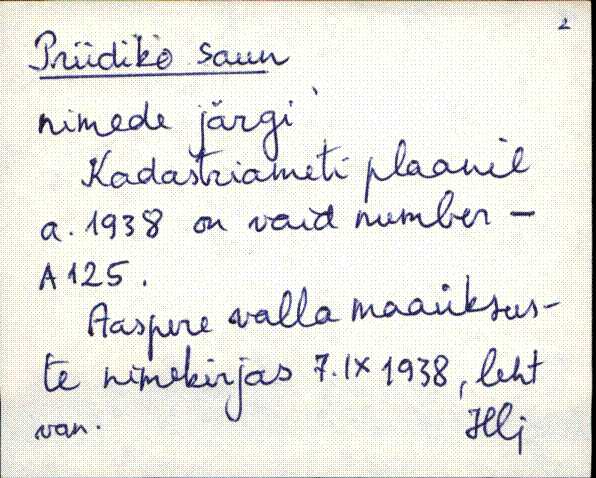 2
Priidikõ saun
nimede järgi
Kadastriameti plaanil
a. 1938 on vaid number –
A 125.
Aaspere valla maaüksus-
te nimekirjas 7.IX 1938, leht
van. Hlj